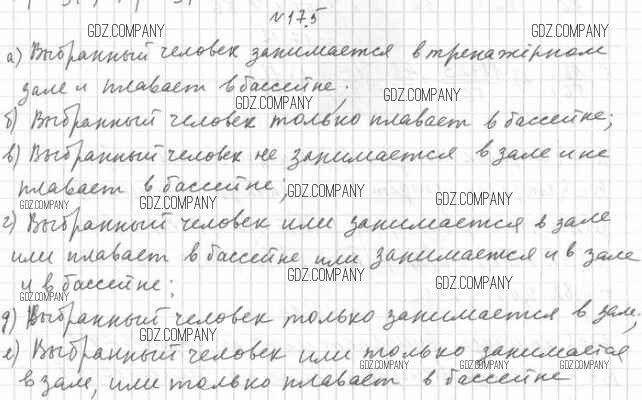 №17.5
GDZ.COMPANY GDZ.COMPANY
а) Выбранный человек занимается в тренажёрном
зале и плавает в бассейне;
GDZ.COMPANY GDZ.COMPANY
б) Выбранный человек только плавает в бассейне;
в) Выбранный человек не занимается в зале и не
плавает в бассейне;
GDZ.COMPANY GDZ.COMPANY GDZ.COMPANY GDZ.COMPANY
г) Выбранный человек или занимается в зале
или плавает в бассейне или занимается и в зале
и в бассейне;
GDZ.COMPANY GDZ.COMPANY GDZ.COMPANY
д) Выбранный человек только занимается в зале;
GDZ.COMPANY
е) Выбранный человек или только занимается
GDZ.COMPANY GDZ.COMPANY GDZ.COMPANY
в зале, или только плавает в бассейне